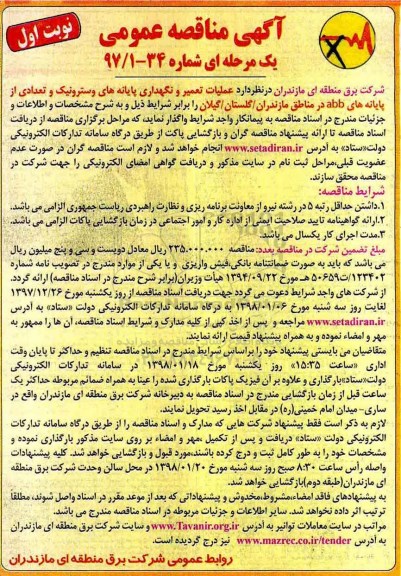 نوبت اول
آگهی مناقصه عمومی
یک مرحله ای شماره ۳۴-۹۷/۱
شرکت برق منطقه ای مازندران درنظردارد عملیات تعمیر و نگهداری پایانه های وسترونیک و تعدادی از
پایانه های abb در مناطق مازندران/گلستان/گیلان را برابر شرایط ذیل و به شرح مشخصات و اطلاعات و
جزئیات مندرج در اسناد مناقصه به پیمانکار واجد شرایط واگذار نماید، که مراحل برگزاری مناقصه از دریافت
اسناد مناقصه تا ارائه پیشنهاد مناقصه گران و بازگشایی پاکت از طریق درگاه سامانه تدارکات الکترونیکی
دولت«ستاد» به آدرس www.setadiran.ir انجام خواهد شد و لازم است مناقصه گران در صورت عدم
عضویت قبلی،مراحل ثبت نام در سایت مذکور و دریافت گواهی امضای الکترونیکی را جهت شرکت در
مناقصه محقق سازند.
شرایط مناقصه:
۱.داشتن حداقل رتبه ۵ در رشته نیرو از معاونت برنامه ریزی و نظارت راهبردی ریاست جمهوری الزامی می باشد.
۲.ارائه گواهینامه تایید صلاحیت ایمنی از اداره کار و امور اجتماعی در زمان بازگشایی پاکات الزامی می باشد.
۳.مدت اجرای کار یکسال می باشد.
مبلغ تضمین شرکت در مناقصه بعدد: مناقصه ۲۳۵.۰۰۰.۰۰۰ ریال معادل دویست و سی و پنج میلیون ریال
می باشد که باید به صورت ضمانتنامه بانکی،فیش واریزی و یا یکی از موارد مندرج در تصویب نامه شماره
۱۲۳۴۰۲/ت۵۰۶۵۹ه مورخ ۱۳۹۴/۰۹/۲۲ هیأت وزیران(برابر شرح مندرج در اسناد مناقصه) ارائه گردد.
از شرکت های واجد شرایط دعوت می گردد جهت دریافت اسناد مناقصه از روز یکشنبه مورخ ۱۳۹۷/۱۲/۲۶
لغایت روز سه شنبه مورخ ۱۳۹۸/۰۱/۰۶ به درگاه سامانه تدارکات الکترونیکی دولت «ستاد» به آدرس
www.setadiran.ir مراجعه و پس از اخذ کپی از کلیه مدارک و شرایط اسناد مناقصه، آن ها را ممهور به
مهر و امضاء نموده و به همراه پیشنهاد قیمت ارائه نمایند.
متقاضیان می بایستی پیشنهاد خود را براساس شرایط مندرج در اسناد مناقصه تنظیم و حداکثر تا پایان وقت
اداری «ساعت ۱۵:۳۵» روز یکشنبه مورخ ۱۳۹۸/۰۱/۱۸ در سامانه تدارکات الکترونیکی
دولت«ستاد»بارگذاری و علاوه بر آن فیزیک پاکات بارگذاری شده را عینا به همراه ضمائم مربوطه حداکثر یک
ساعت قبل از زمان بازگشایی مندرج در اسناد مناقصه به دبیرخانه شرکت برق منطقه ای مازندران واقع در
ساری- میدان امام خمینی(ره) در مقابل اخذ رسید تحویل نمایند.
لازم به ذکر است فقط پیشنهاد شرکت هایی که مدارک و اسناد مناقصه را از طریق درگاه سامانه تدارکات
الکترونیکی دولت «ستاد» دریافت و پس از تکمیل مهر و امضاء بر روی سایت مذکور بارگذاری نموده و
مشخصات خود را به طور کامل ثبت و درج کرده باشند،مورد قبول و بازگشایی خواهد شد. کلیه پیشنهادات
واصله رأس ساعت ۸:۳۰ صبح روز سه شنبه مورخ ۱۳۹۸/۰۱/۲۰ در محل سالن وحدت شرکت برق منطقه
ای مازندران(طبقه دوم)بازگشایی خواهد شد.
به پیشنهادهای فاقد امضاء،مشروط،مخدوش و پیشنهاداتی که بعد از موعد مقرر در اسناد واصل شوند، مطلقاً
ترتیب اثر داده نخواهد شد. سایر اطلاعات و جزئیات مربوطه در اسناد مناقصه مندرج می باشد.
مراتب در سایت معاملات توانیر به آدرس www.Tavanir.org.ir و سایت شرکت برق منطقه ای مازندران
به آدرس www.mazrec.co.ir/tender نیز درج گردیده است.
روابط عمومی شرکت برق منطقه ای مازندران